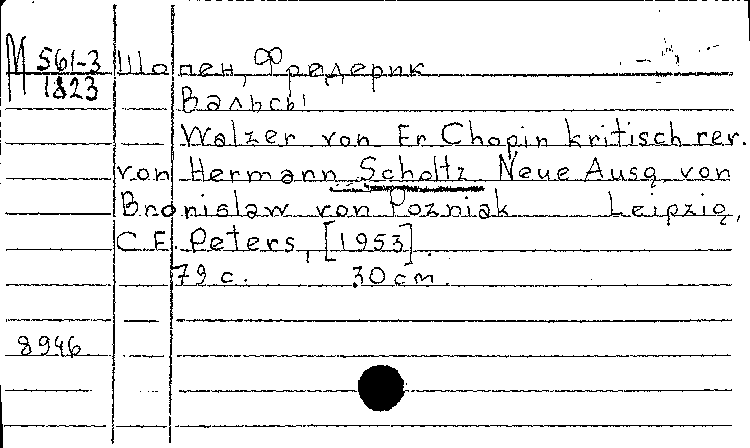 М 561-3
1823
Шопен, Фредерик
Вальсы
Walzer von Fr Chopin kritisch rev.
von Hermann Scholtz Neue Ausg. von
Bronislaw von Pozniak Leipzig,
C. F. Peters, [1953].
79 с. 30 см.
8946